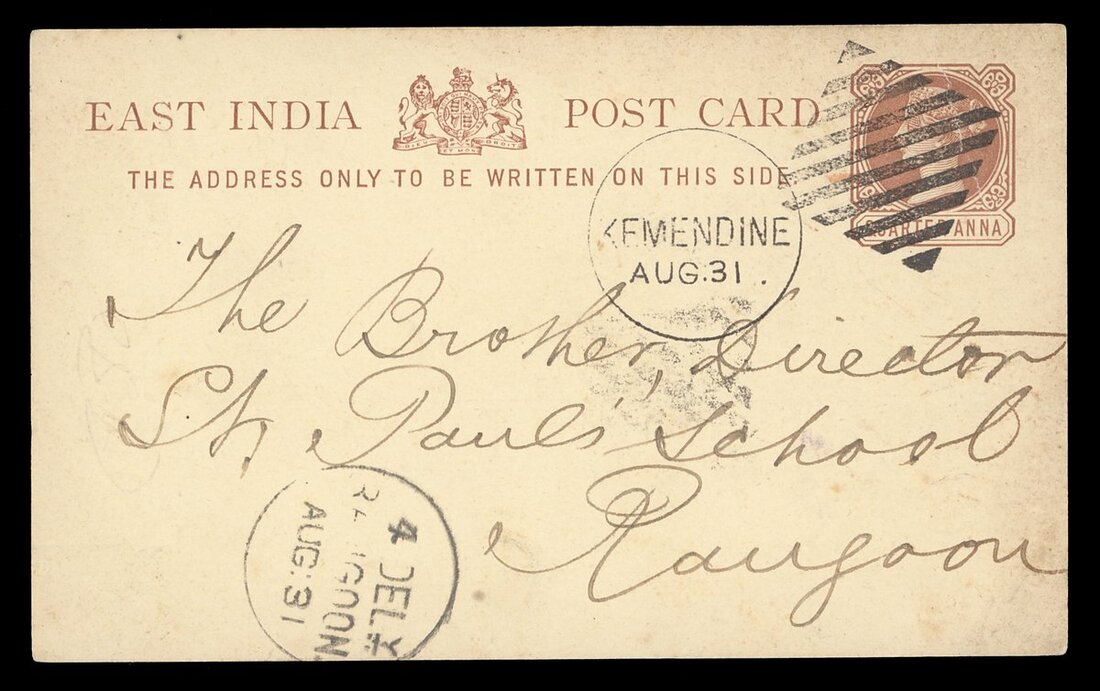 EAST INDIA POST CARD
DIEU ET MON DROIT
THE ADDRESS ONLY TO BE WRITTEN ON THIS SIDE
QUARTER ANNA
KEMENDINE
AUG:31.
The Brother, Director
St. Paul's School
Rangoon
4 DELY
RANGOON
AUG:31